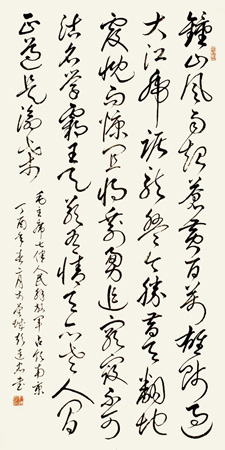 鐘山風雨起蒼黃百萬雄師過
大江虎踞龍盤今勝昔天翻地
覆慨而慷宜將剩勇追窮寇不可
沽名學霸王天若有情天亦老人間
正道是滄桑
毛主席七律人民解放軍占領南京
丁酉年春二月